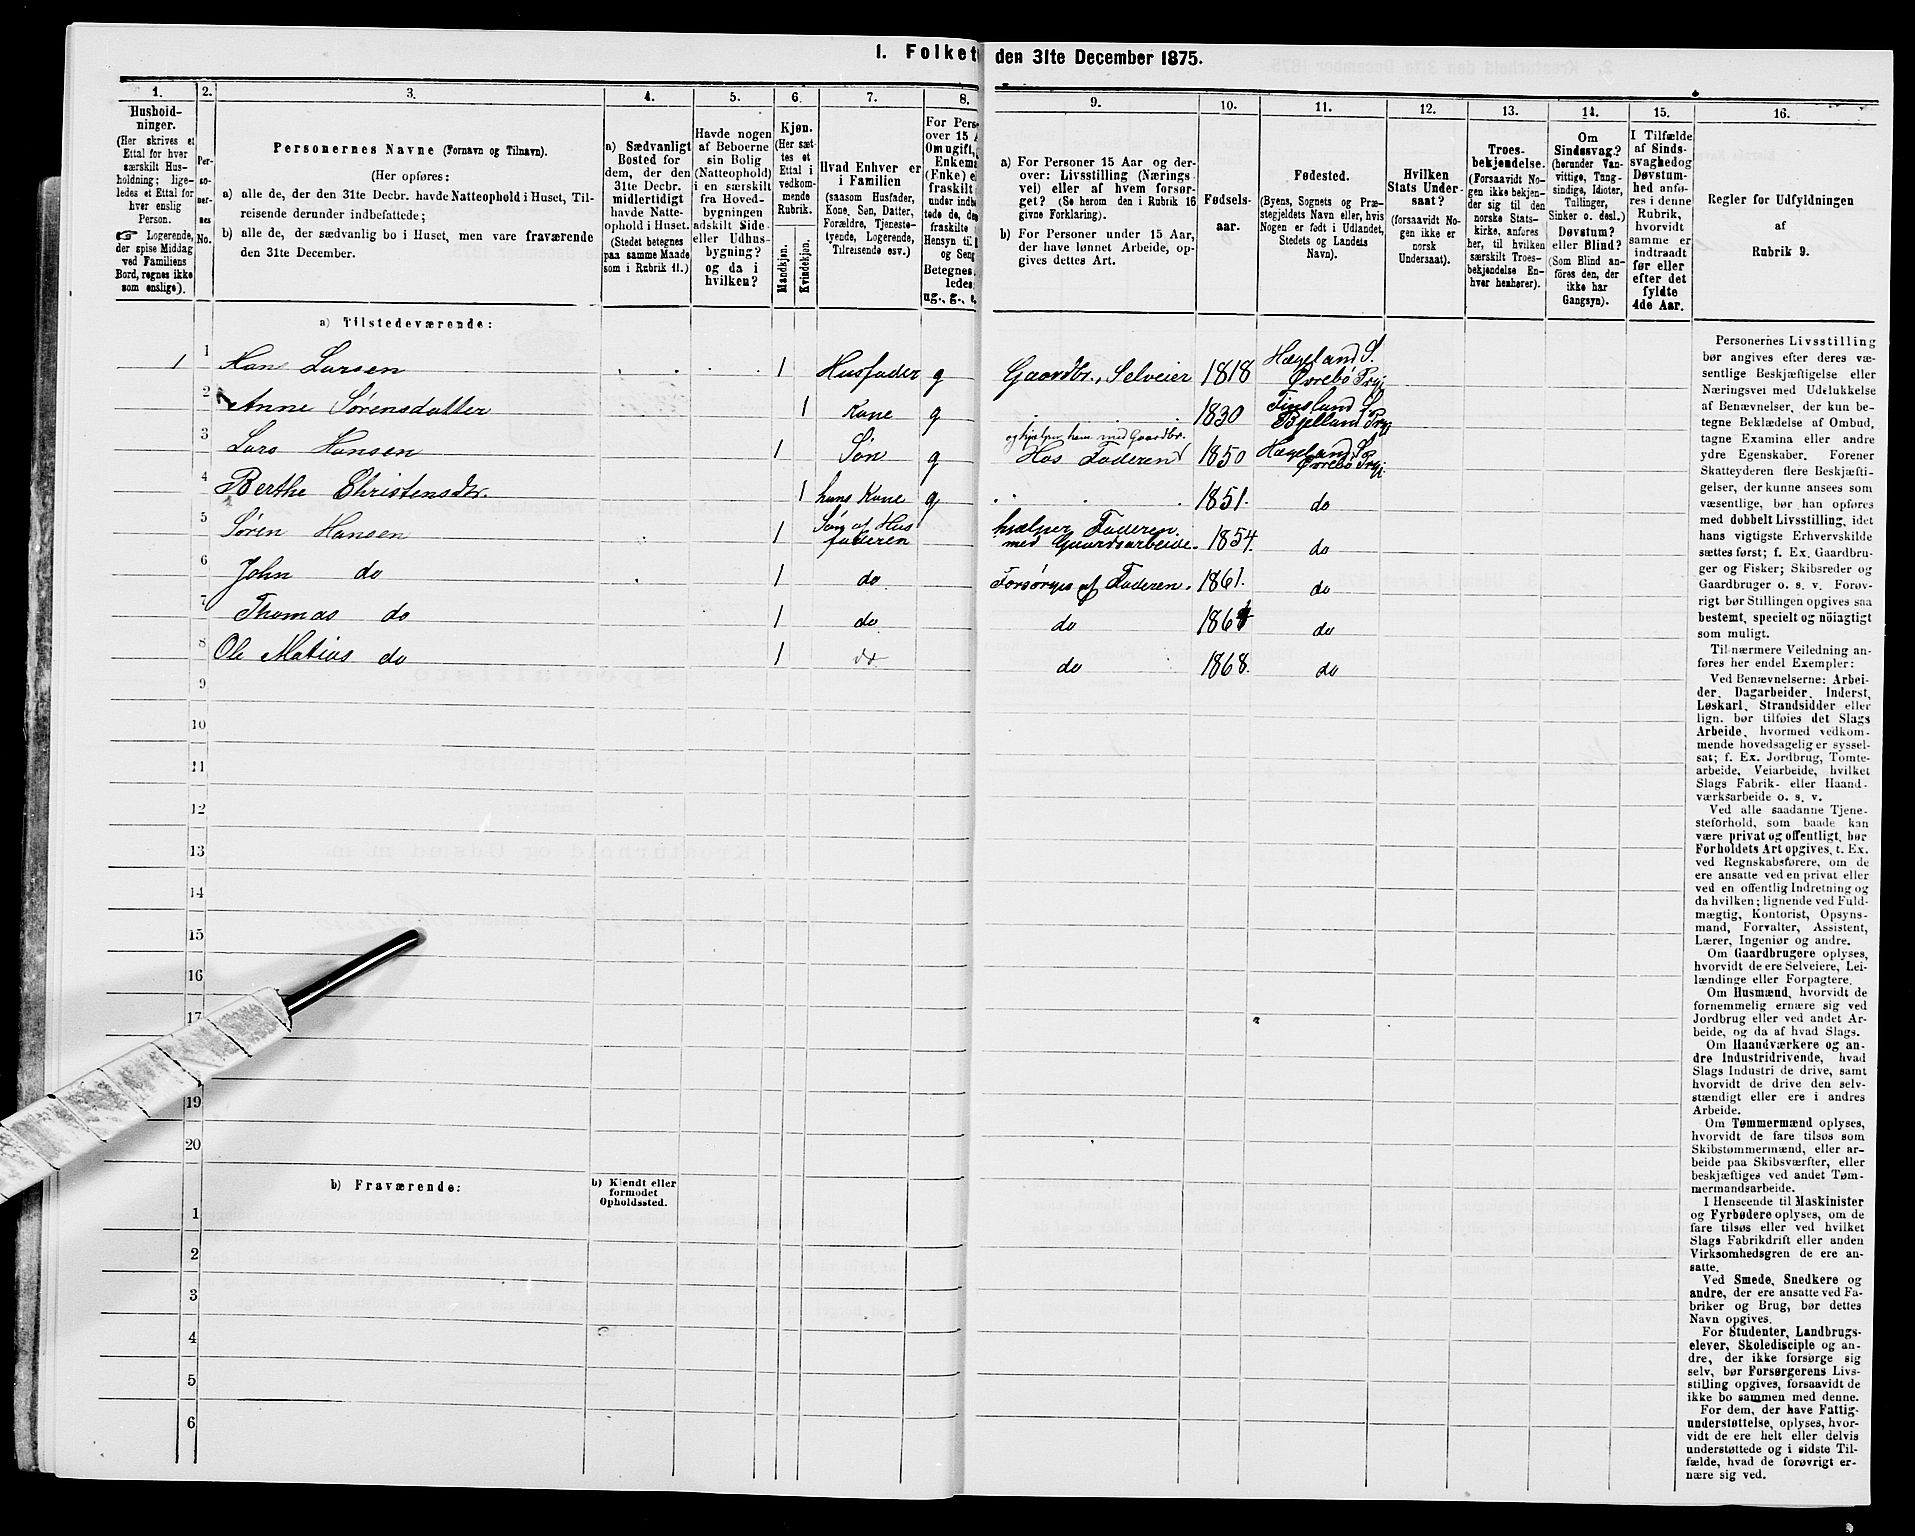 1. Folket
den 31te December 1875.
1.
Hushold-
ninger.
(Her skrives et
Ettal for hver
særskilt Hus-
holdning; lige-
ledes et Ettal for
hver enslig
Person.
Logerende,
der spise Middag
ved Familiens
Bord, regnes ikke
som enslige).
2.
Per-
so-
ner-
nes
No.
3.
Personernes Navne (Fornavn og Tilnavn).
(Her opføres:
a) alle de, der den 31te Decbr. havde Natteophold i Huset, Til-
reisende derunder indbefattede;
b) alle de, der sædvanlig bo i Huset, men vare fraværende
den 31te December.
4.
a) Sædvanligt
Bosted for
dem, der den
31te Decbr.
midlertidigt
havde Natte-
ophold i Huset.
(Stedet betegnes
paa samme Maade
som i Rubrik 11.)
5.
Havde nogen
af Beboerne
sin Bolig
(Natteophold)
i en særskilt
fra Hoved-
bygningen
adskilt Side-
eller Udhus-
bygning?
og da i
hvilken?
6.
Kjøn.
(Her sæt-
tes et
Ettal i
vedkom-
mende
Rubrik.
Mandkjøn.
Kvindekjøn.
7.
Hvad Enhver er
i Familien
(saasom Husfader,
Kone, Søn, Datter,
Forældre, Tjeneste-
tyende, Logerende,
Tilreisende osv.)
8.
For Pers
over 15 A
Om ugift,
Enkema
(Enke) e
fraskilt
under indb
tede de, de
fraskilte
Hensyn til
og Seng
Betegnes
ledes
ug., g., e.
9.
a) For Personer 15 Aar og der-
over: Livsstilling (Nærings-
vei) eller af hvem forsør-
get? (Se herom den i Rubrik 16
givne Forklaring).
b) For Personer under 15 Aar,
der have lønnet Arbeide, op-
gives dettes Art.
10.
Fødsels-
aar.
11.
Fødested.
(Byens, Sognets og Præ-
stegjeldets Navn eller, hvis
Nogen er født i Udlandet,
Stedets og Landets
Navn).
12.
Hvilken
Stats Under-
saat?
(forsaavidt No-
gen ikke er
norsk
Undersaat).
13.
Troes-
bekjendelse.
(Forsaavidt No-
gen ikke bekjen-
der sig til den
norske Stats-
kirke, anføres
her, til hvilken
særskilt Troes-
bekjendelse En-
hver henhører).
14.
Om
Sindssvag?
(herunder Van-
vittige, Tung-
sindige, Idioter,
Tullinger,
Sinker o. desl.)
Døvstum?
eller Blind?
(Som Blind an-
føres den, der
ikke har
Gangsyn).
15.
I Tilfælde
af Sinds-
svaghed og
Døvstum-
hed anfø-
res i denne
Rubrik,
hvorvidt
samme er
indtraadt
før eller
efter det
fyldte
4de Aar.
16.
Regler for Udfyldningen
af
Rubrik 9.
a) Tilstedeværende:
1 1 Hans Larsen 1 Husfader g Gaardbr., Selveier 1818 Hægeland S. Øvrebø Prgj
2 Anne Sørensdatter 1 Kone g 1830 Finsland S Bjelland Prgj
3 Lars Hansen 1 Søn g og hjelper ham med Gaardbr. Hos Faderen 1850 Hægeland S. Øvrebø Prgj.
4 Berthe Christensdtr. 1 hans Kone g 1851. do
5 Søren Hansen 1 Søn af Hus faderen hjælper Faderen med Gaardsarbeide. 1854. do
6 John do 1 do Forsørges af Faderen. 1861. do
7 Thomas do 1 do do do
8 Ole Matias do 1 do do 1868. do
9
10
11
12
13
14
15
16
17
19
20
b) Fraværende:
b) Kjendt eller
formodet
Opholdssted.
1
2
3
4
5
6
Personernes Livsstilling
bør angives efter deres væ-
sentlige Beskjæftigelse eller
Næringsvei med Udelukkelse
af Benævnelser, der kun be-
tegne Beklædelse af Ombud,
tagne Examina eller andre
ydre Egenskaber. Forener
Skatteyderen flere Beskjæfti-
gelser, der kunne ansees som
væsentlige, bør han opføres
med dobbelt Livsstilling, idet
hans vigtigste Erhvervskilde
sættes først; f. Ex. Gaardbru-
ger og Fisker; Skibsreder og
Gaardbruger o. s. v. Forøv-
rigt bør Stillingen opgives saa
bestemt, specielt og nöiagtigt
som muligt.
Til nærmere Veiledning an-
føres her endel Exempler:
Ved Benævnelserne: Arbei-
der, Dagarbeider, Inderst,
Løskarl, Strandsidder eller
lign. bør tilføies det Slags
Arbeide, hvormed vedkom-
mende hovedsagelig er syssel-
sat; f. Ex. Jordbrug, Tomte-
arbeide, Veiarbeide, hvilket
Slags Fabrik- eller Haand-
værksarbeide o. s. v.
Ved alle saadanne Tjene-
steforhold, som baade kan
være privat og offentligt, bør
Forholdets Art opgives, t. Ex.
ved Regnskabsførere, om de
ere ansatte ved en privat eller
ved en offentlig Indretning og
da hvilken; lignende ved Fuld-
mægtig, Kontorist, Opsyns-
mand, Forvalter, Assistent,
Lærer, Ingeniør og andre.
Om Gaardbrugere oplyses,
hvorvidt de ere Selveiere, Lei-
lændinge eller Forpagtere.
Om Husmænd, hvorvidt de
fornemmelig ernære sig ved
Jordbrug eller ved andet Ar-
beide, og da af hvad Slags.
Om Haandværkere og an-
dre Industridrivende, hvad
Slags Industri de drive, samt
hvorvidt de drive den selv-
stændigt eller ere i andres
Arbeide.
Om Tømmermænd oplyses,
hvorvidt de fare tilsøs som
Skibstømmermænd, eller ar-
beide paa Skibsværfter, eller
beskjæftiges ved andet Tøm-
mermandsarbeide.
I Henseende til Maskinister
og Fyrbødere oplyses, om de
fare tilsøs eller ved hvilket
Slags Fabrikdrift eller anden
Virksomhedsgren de ere an-
satte.
Ved Smede, Snedkere og
andre, der ere ansatte ved Fa-
briker og Brug, bør dettes
Navn opgives.
For Studenter, Landbrugs-
elever, Skoledisciple og an-
dre, der ikke forsørge sig
selv, bør Forsørgerens Livs-
stilling opgives, forsaavidt de
ikke bo sammen med denne.
For dem, der have Fattig-
understøttelse, oplyses, hvor-
vidt de ere helt eller delvis
understøttede og i sidste Til-
fælde, hvad de forøvrigt er-
nære sig ved.